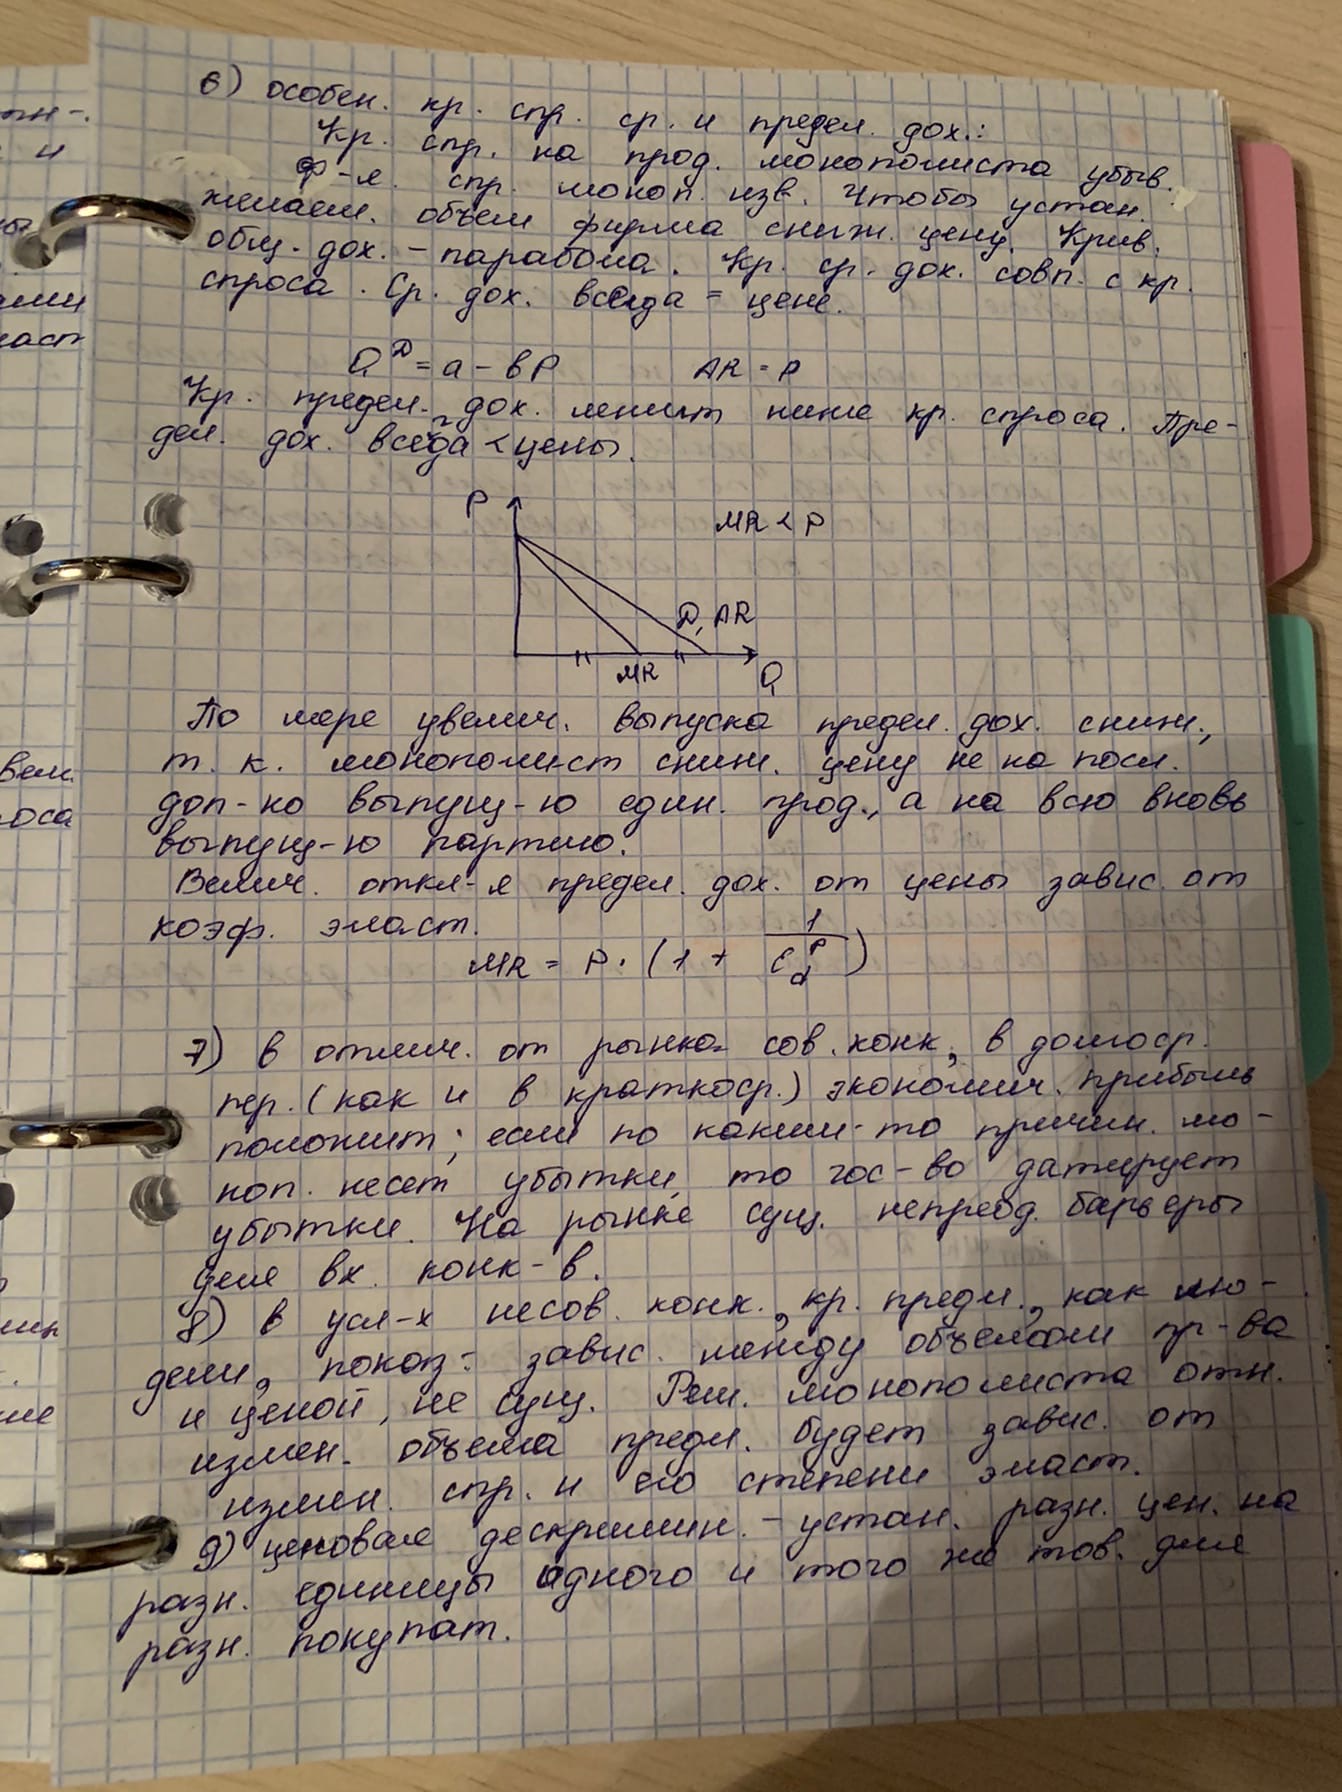 6) особен. кр. спр. ср. и предел. дох.:
Кр. спр. на прод. монополиста убыв.
Ф-я. спр. моноп. изв. Чтобы устан.
желаем. объем фирма сниж. цену. Крив.
общ. дох. – парабола. Кр. ср. дох. совп. с кр.
спроса. Ср. дох. всегда = цене.
Q^D = a - bP AR = P
Кр. предел. дох. лежит ниже кр. спроса. Пре-
дел. дох. всегда < цены.
P
MR < P
D, AR
MR Q
По мере увелич. выпуска предел. дох. сниж.,
т. к. монополист сниж. цену не на посл.
доп-но выпущ-ю един. прод., а на всю вновь
выпущ-ю партию.
Велич. откл-я предел. дох. от цены завис. от
коэф. эласт.
MR = P · (1 + 1/E_d^P)
7) в отлич. от рынка сов. конк, в долгоср.
пер. (как и в краткоср.) экономич. прибыль
положит; если по каким-то причин. мо-
ноп. несет убытки, то гос-во датирует
убытки. На рынке сущ. непреод. барьеры
для вх. конк-в.
8) в усл-х несов. конк., кр. предл., как мо-
дели, показ. завис. между объемом пр-ва
и ценой, не сущ. Реш. монополиста отн.
измен. объема предл. будет завис. от
измен. спр. и его степени эласт.
9) ценовая дескримин. – устан. разн. цен. на
разн. единицы одного и того же тов. для
разн. покупат.